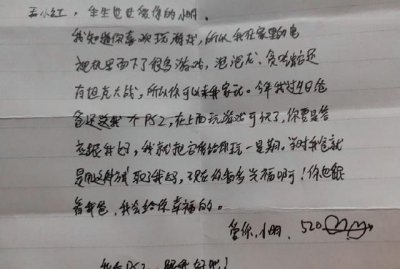 小红，的小明。
我知道你喜欢玩游戏，所以我在家里的电
里面下了很多游戏，泡泡龙、贪吃蛇还
有坦克大战，所以你可以来我家玩。今年我过生日爸
爸还送我一个PS2，在上面玩游戏可爽了，你要是答
应跟我好，我就把它借给你玩一星期。当时我爸就
是用这种方式娶了我妈，现在你看多幸福啊！你也跟
着我，我会给你幸福的。
爱你，小明，520
PS2，跟我好吧！